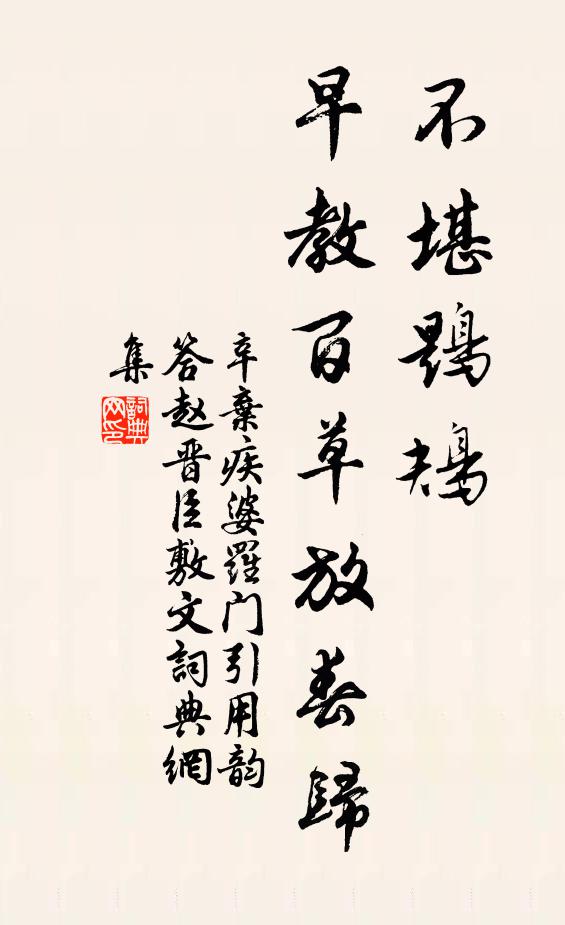 不堪鶗鴃
早教百草放春歸
辛棄疾婆羅门引用韵
答赵晋臣敷文詞典網
集
詞典
网印